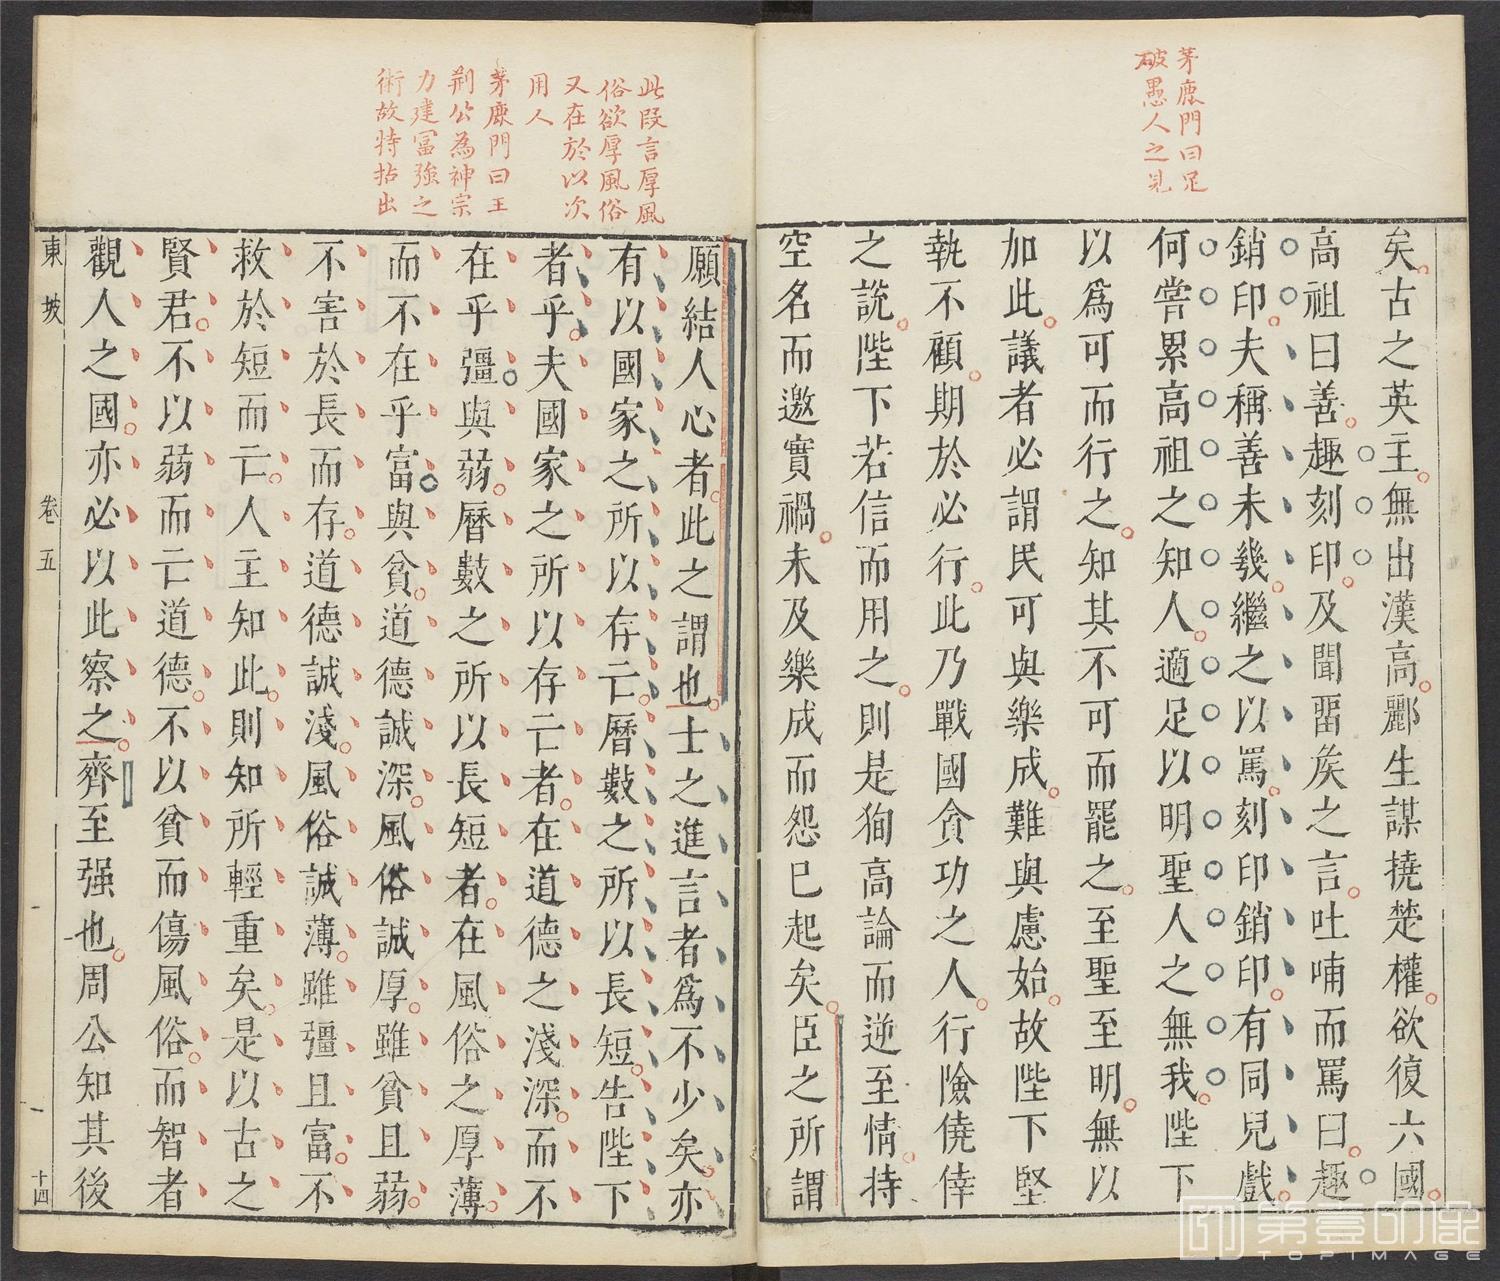 茅鹿門曰足
破愚人之見
矣古之英主無出漢高酈生謀撓楚權欲復六國
高祖曰善趣刻印及聞留矦之言吐哺而罵曰趣
銷印夫稱善未幾繼之以罵刻印銷印有同兒戲
何嘗累高祖之知人適足以明聖人之無我陛下
以爲可而行之知其不可而罷之至聖至明無以
加此議者必謂民可與樂成難與慮始故陛下堅
執不顧期於必行此乃戰國貪功之人行險僥倖
之說陛下若信而用之則是狥高論而逆至情持
空名而邀實禍未及樂成而怨已起矣臣之所謂
此段言厚風
俗欲厚風俗
又在於以次
用人
茅鹿門曰王
荆公為神宗
力建冨強之
術故特拈出
願結人心者此之謂也士之進言者爲不少矣亦
有以國家之所以存亡曆數之所以長短告陛下
者乎夫國家之所以存亡者在道德之淺深而不
在乎彊與弱曆數之所以長短者在風俗之厚薄
而不在乎富與貧道德誠深風俗誠厚雖貧且弱
不害於長而存道德誠淺風俗誠薄雖彊且富不
救於短而亡人主知此則知所輕重矣是以古之
賢君不以弱而亡道德不以貧而傷風俗而智者
觀人之國亦必以此察之齊至强也周公知其後
東坡 卷五 十四
第壹印象
TOPIMAGE